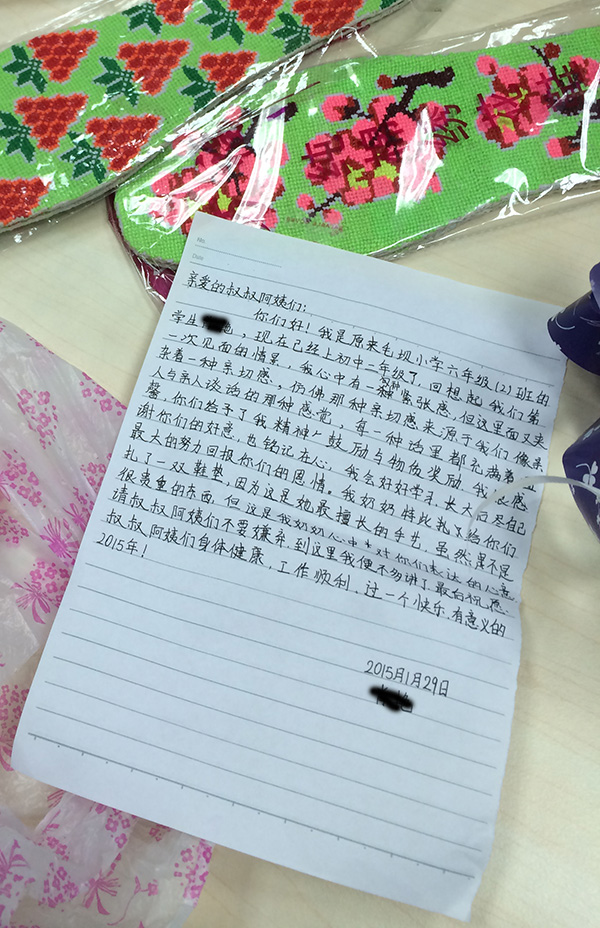 No.
Date
亲爱的叔叔阿姨们：
你们好！我是原来毛坝小学六年级（2）班的
学生，现在已经上初中一年级了，回想起我们第
一次见面的情景，我心中有一种紧张感，但这里面又夹
杂着一种亲切感，仿佛那种亲切感来源于我们像亲
人与亲人谈话的那种感觉，每一种话里都充满着温
馨，你们给予了我精神上鼓励与物质奖励，我很感
谢你们的好意，也铭记在心，我会好好学习，长大后尽自己
最大的努力回报你们的恩情。我奶奶特此扎了给你们
扎了一双鞋垫，因为这是她最擅长的手艺，虽然算不是
很贵重的东西，但这是我奶奶心中对你们表达的心意，
请叔叔阿姨们不要嫌弃，到这里我便不多讲了，最后祝愿
叔叔、阿姨们身体健康，工作顺利，过一个快乐、有意义的
2015年！
2015月1月29日